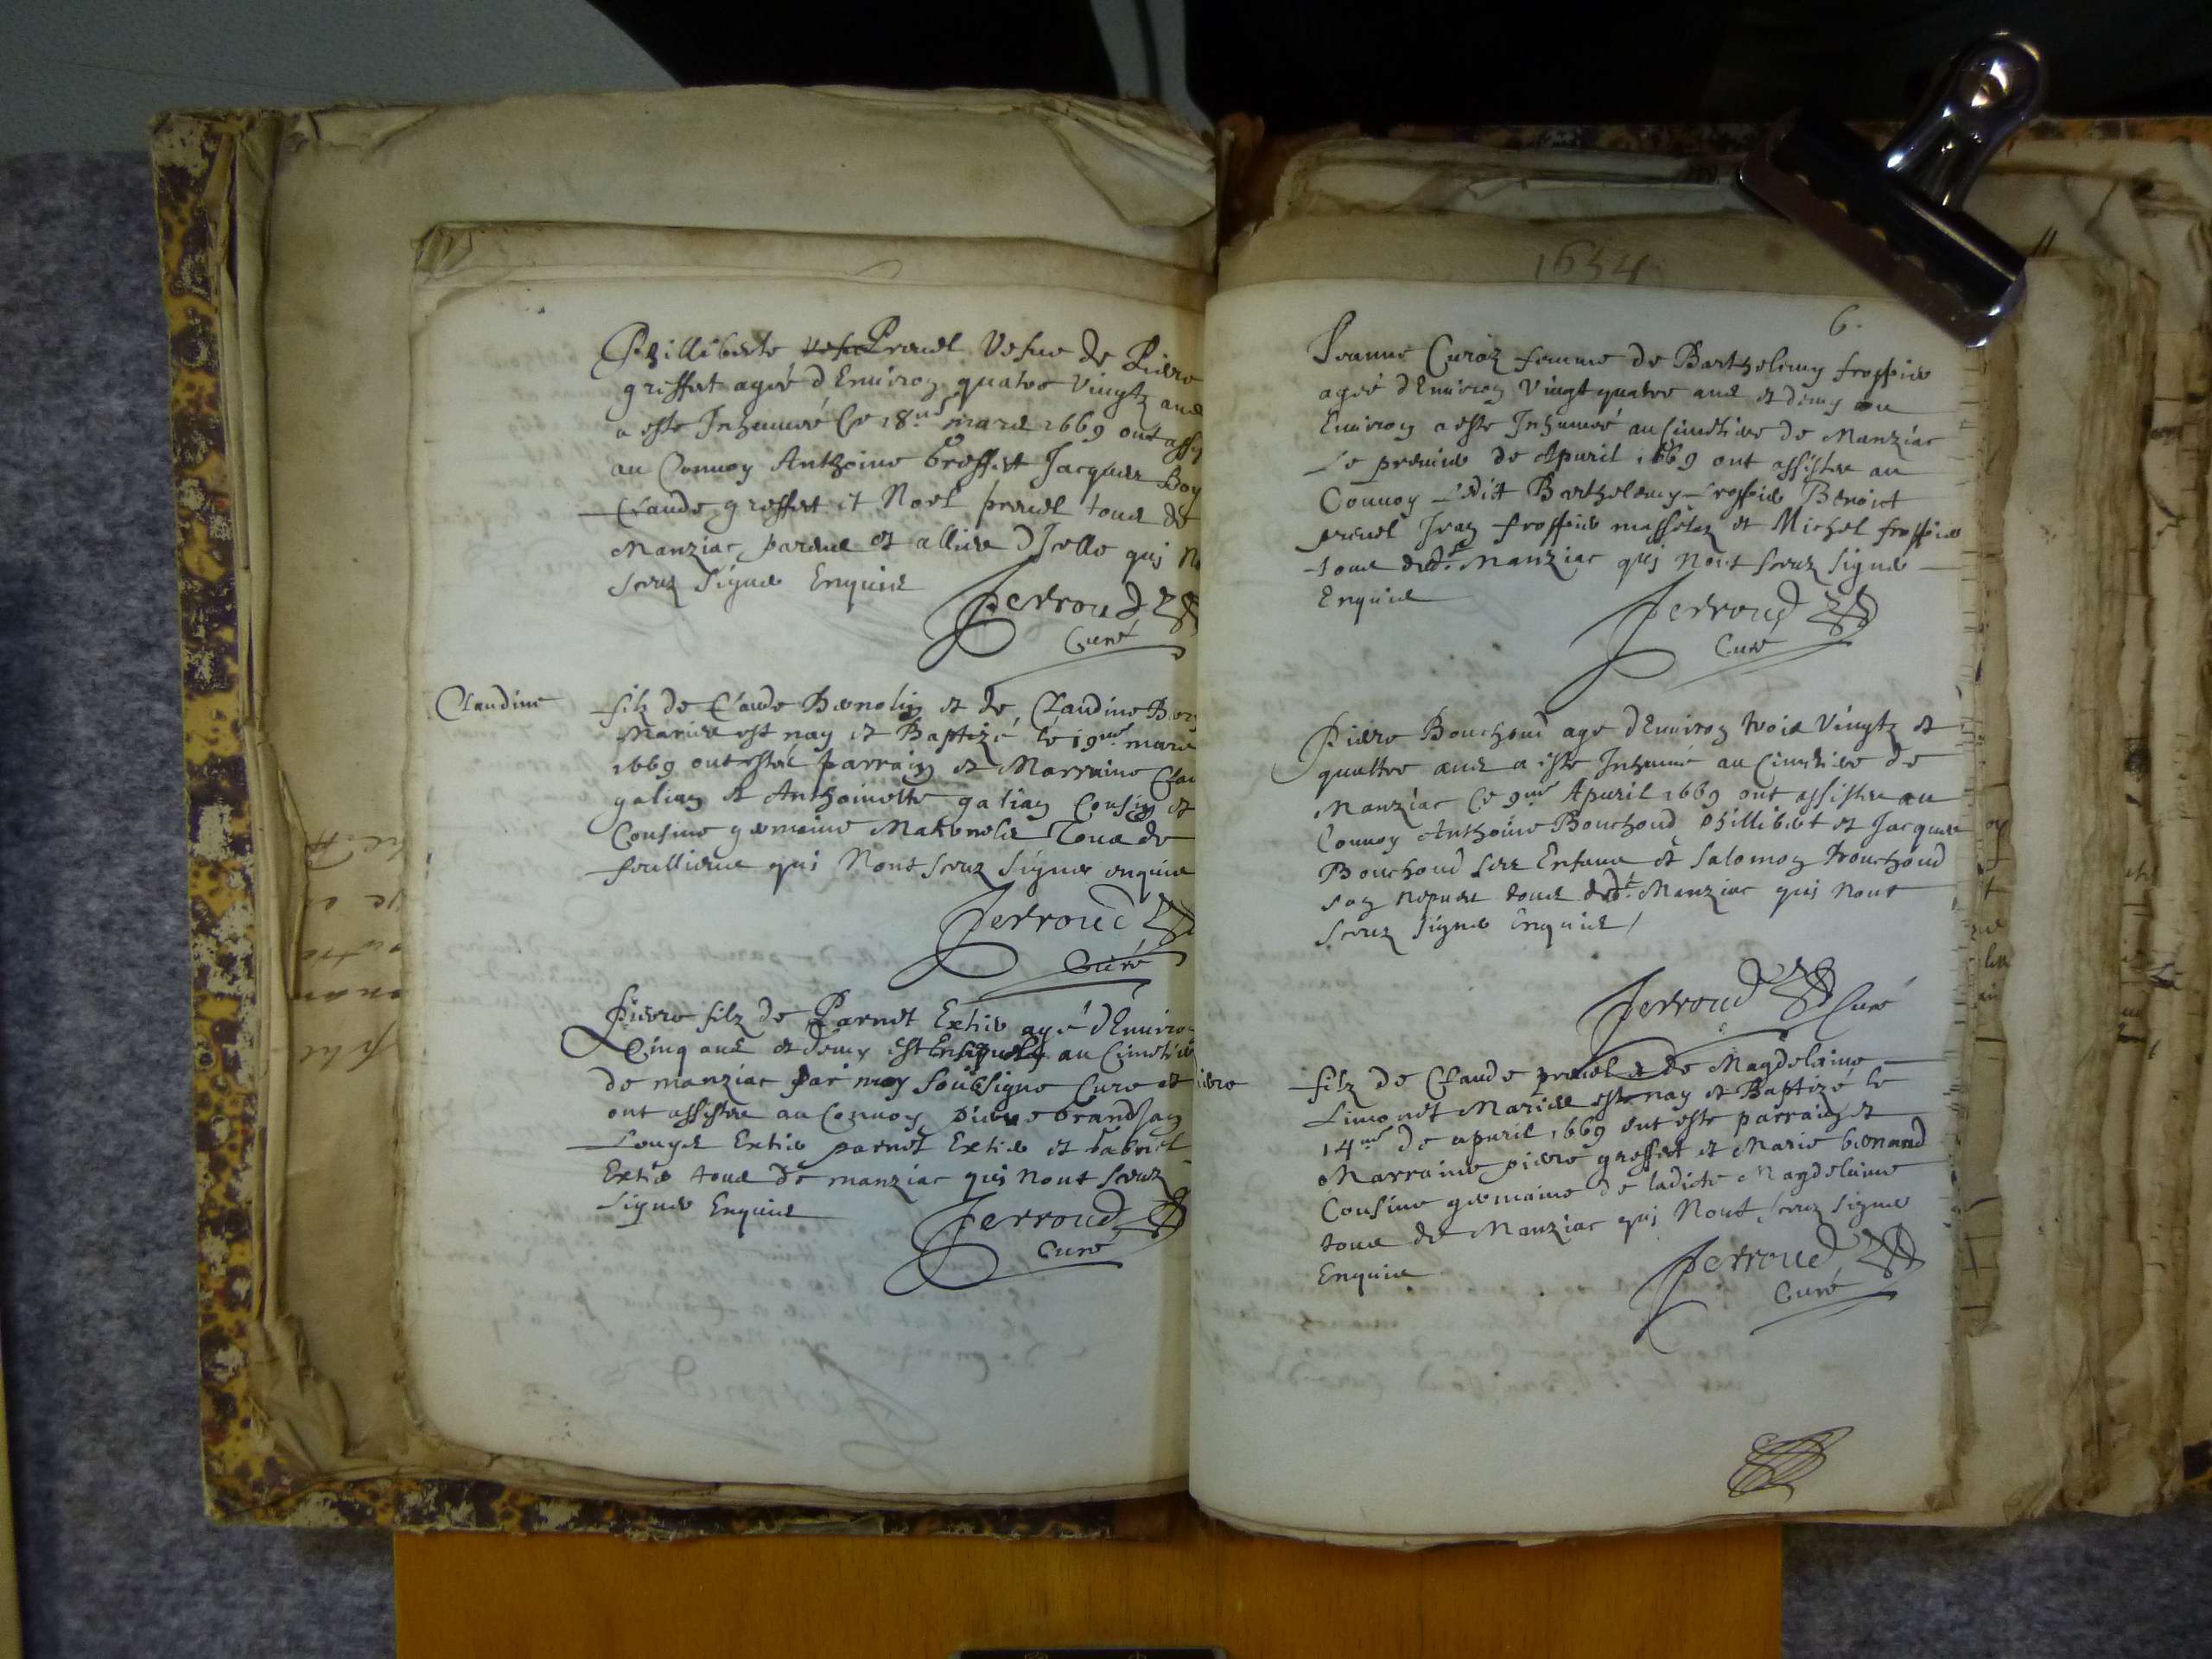 Philliberte Prevel Vefve de Pierre
greffet ageé d'Environ quatre Vingtz ans
a este Inhumeé Ce 18.me mars 1669 ont assis
au Convoy Anthoine Greffet Jacques Boy
Claude greffet et Noel prevel tous de
Manziac parens et alliés d'Icelle qui N
sceuz signer Enquis
Perroud
Curé
Claudine
filz de Claude et de Claudine
Mariés est nay et Baptizé le 19.me mars
1669 ont estés parrain et Marraine Clau
galian et Anthoinette galian Cousin et
Cousine germaine Maternels Tous de
feulliens qui Nont sceuz signer enquis
Perroud
Curé
Pierre filz de Parnet Extier agé d'Enviro
Cinq ans et demy est au Cimetier
de manziac par moy soubsigne Cure et
ont assistes au Convoy pierre brandjan
Louys Extier parnet Extier et
Extier tous de manziac qui nont sceuz
signer Enquis
Perroud
Curé
1654
6.
Jeanne Curoz femme de Barthelemy froppier
ageé d'Environ Vingt quatre ans et demy ou
Environ a este Inhumeé au Cimetiere de Manziac
Le premier de Apuril 1669 ont assistes au
Convoy Ledit Barthelemy froppier Benoict
prevel Jean froppier et Michel froppier
tous dud.t Manziac qui Nont sceuz signer
Enquis
Perroud
Curé
Pierre Bouchoud age d'Environ trois Vingtz et
quattre ans a este Inhumé au Cimetiere de
Manziac Ce 9.me Apuril 1669 ont assistes au
Convoy Anthoine Bouchoud phillibert et Jacques
Bouchoud ses Enfans et Salomon Bouchoud
son nepveu tous dud.t Manziac qui Nont
sceuz signer Enquis
Perroud Curé
ierre
filz de Claude prevel et de Magdelaine
Limonet Mariés est nay et Baptizé le
14.me de apuril 1669 ont este parrain et
Marraine pierre greffet et Marie benand
Cousine germaine de ladicte Magdelaine
tous de Manziac qui Nont sceuz signer
Enquis
Perroud
Curé